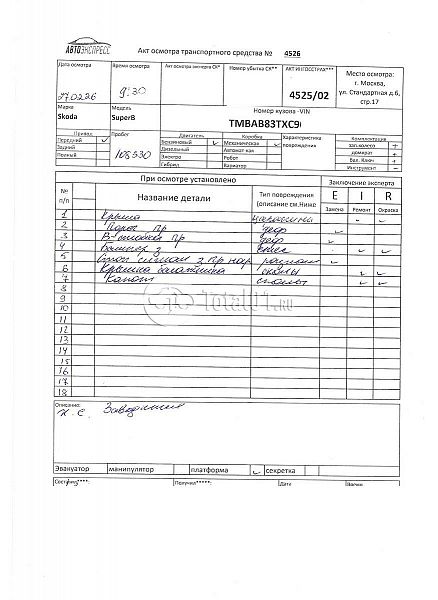 АВТОЭКСПРЕСС
Акт осмотра транспортного средства № 4526
Дата осмотра
Время осмотра
Акт осмотра эксперта СК*
Номер убытка СК**
АКТ ИНГОССТРАХ***
Место осмотра:
г. Москва,
ул. Стандартная д.6,
стр.17
9:30
4525/02
Марка
Модель
Номер кузова -VIN
Skoda
SuperB
TMBAB83TXC9
Привод
Пробег
Двигатель
Коробка
Характеристика повреждения
Комплектация
Передний
Бензиновый
Механическая
зап.колесо +
Задний
Дизельный
Автомат-кая
домкрат +
Полный
108530
Электро
Робот
Бал. Ключ +
Гибрид
Вариатор
Инструмент -
При осмотре установлено
Заключение эксперта
№ п/п
Название детали
Тип повреждения
(описание см.Ниже
E I R
Замена Ремонт Окраска
1 Крыша
2 Порог Пр деф
3 В-стойка Пр деф
4 Бампер з
5
6 Крышка багажника сколы
7 Капот сколы
8
9
10
11
12
13
14
15
16
17
18
Total01.ru
Описание:
Х.С.
Эвакуатор манипулятор платформа секретка
Получил*****: Дата